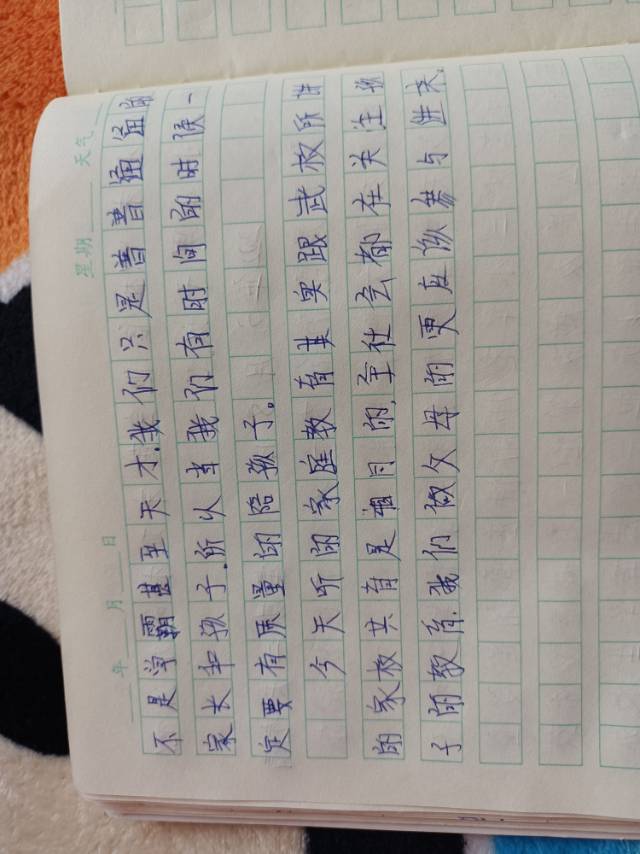 年 月 日 星期 天气
不是学霸甚至天才.我们只是普普通通的
家长和孩子.所以当我们有时间的时候一
定要有质量的陪孩子。
今天听的家庭教育其实跟武校所讲
的家校共育是相同的.全社会都在关注孩
子的教育.我们做父母的更应该参与进来.